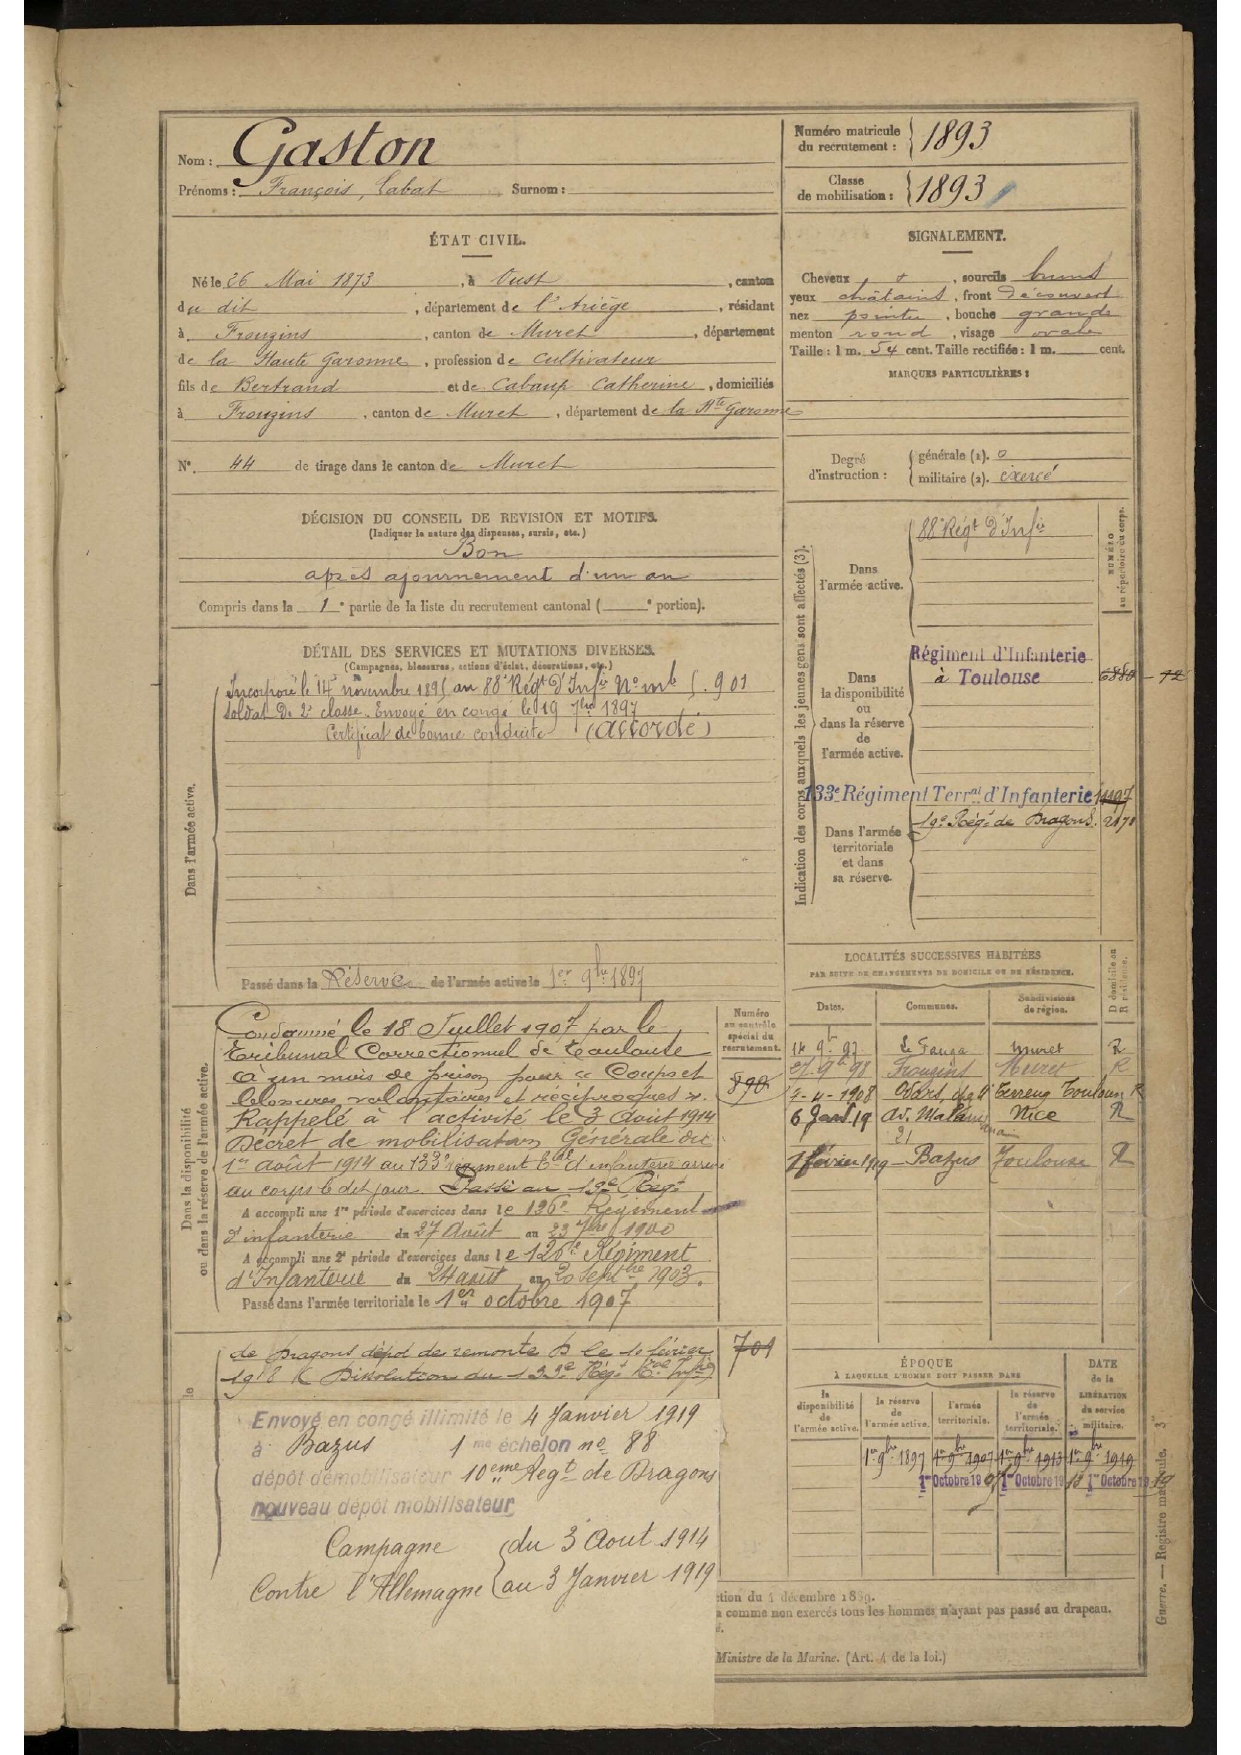 Nom : Gaston
Prénoms : François, Cabat Surnom :
Numéro matricule du recrutement : 1893
Classe de mobilisation : 1893
ÉTAT CIVIL.
Né le 26 Mai 1873, à Oust, canton
du dit, département de l'Ariège, résidant
à Frouzins, canton de Muret, département
de la Haute Garonne, profession de Cultivateur
fils de Bertrand et de Cabaup Catherine, domiciliés
à Frouzins, canton de Muret, département de la Hte Garonne
N°. 44 de tirage dans le canton de Muret
SIGNALEMENT.
Cheveux d, sourcils bruns
yeux châtains, front découvert
nez pointu, bouche grande
menton rond, visage ovale
Taille : 1 m. 54 cent. Taille rectifiée : 1 m. cent.
MARQUES PARTICULIÈRES :
Degré d'instruction :
générale (2). 0
militaire (2). exercé
DÉCISION DU CONSEIL DE REVISION ET MOTIFS.
(Indiquer la nature des dispenses, sursis, etc.)
Bon
après ajournement d'un an
Compris dans la 1e partie de la liste du recrutement cantonal ( e portion).
DÉTAIL DES SERVICES ET MUTATIONS DIVERSES.
(Campagnes, blessures, actions d'éclat, décorations, etc.)
Dans l'armée active.
Incorporé le 14 novembre 1895 au 88e Régt d'Infie No mle 5.901
Soldat de 2e classe. Envoyé en congé le 19 7bre 1897
Certificat de bonne conduite (accordé)
Passé dans la Réserve de l'armée active le 1er 9bre 1897
Indication des corps auxquels les jeunes gens sont affectés (3).
NUMÉRO au répertoire du corps.
Dans l'armée active.
88e Régt d'Infie
Dans la disponibilité ou dans la réserve de l'armée active.
Régiment d'Infanterie
à Toulouse 6880 - 72
Dans l'armée territoriale et dans sa réserve.
133e Régiment Terral d'Infanterie 1197
19e Régt de Dragons. 2170
Dans la disponibilité ou dans la réserve de l'armée active.
Numéro au contrôle spécial du recrutement.
890
Condamné le 18 Juillet 1907 par le
Tribunal Correctionnel de Toulouse
à un mois de prison pour "Coups et
blessures volontaires et réciproques".
Rappelé à l'activité le 3 Août 1914
Décret de mobilisation Générale du
1er août 1914 au 133e régiment tal d'infanterie arrivé
au corps le dit jour. Passé au 19e Régt
A accompli une 1re période d'exercices dans le 126e Régiment
d'infanterie du 27 Août au 23 7bre 1900
A accompli une 2e période d'exercices dans le 126e Régiment
d'Infanterie du 24 août au 20 Septbre 1903.
Passé dans l'armée territoriale le 1er octobre 1907
de Dragons dépôt de remonte le 10 février
1918 Dissolution du 133e Régt Infie
701
Envoyé en congé illimité le 4 Janvier 1919
à Bazus 1me échelon no 88
dépôt démobilisateur 10eme Regt de Dragons
nouveau dépôt mobilisateur
Campagne du 3 Aout 1914
Contre l'Allemagne au 3 Janvier 1919
LOCALITÉS SUCCESSIVES HABITÉES
PAR SUITE DE CHANGEMENTS DE DOMICILE OU DE RÉSIDENCE.
Dates. Communes. Subdivisions de région. D domicile ou R résidence.
14 9b 97 Le Fauga Muret R
27 9b 98 Frouzins Muret R
1908 Toulouse R
6 Janv 19 Av. Malaussena 21 Nice R
1 février 1919 Bazus Toulouse R
ÉPOQUE
À LAQUELLE L'HOMME DOIT PASSER DANS
la disponibilité de l'armée active. la réserve de l'armée active. l'armée territoriale. la réserve de l'armée territoriale.
DATE de la LIBÉRATION du service militaire.
1er 9bre 1897 1er 9bre 1907 1er 9bre 1913 1er 9bre 1919
1er Octobre 1907 1er Octobre 1913 1er Octobre 1919
ction du 4 décembre 1889.
a comme non exercés tous les hommes n'ayant pas passé au drapeau.
Ministre de la Marine. (Art. 4 de la loi.)
Guerre. — Registre matricule. 3